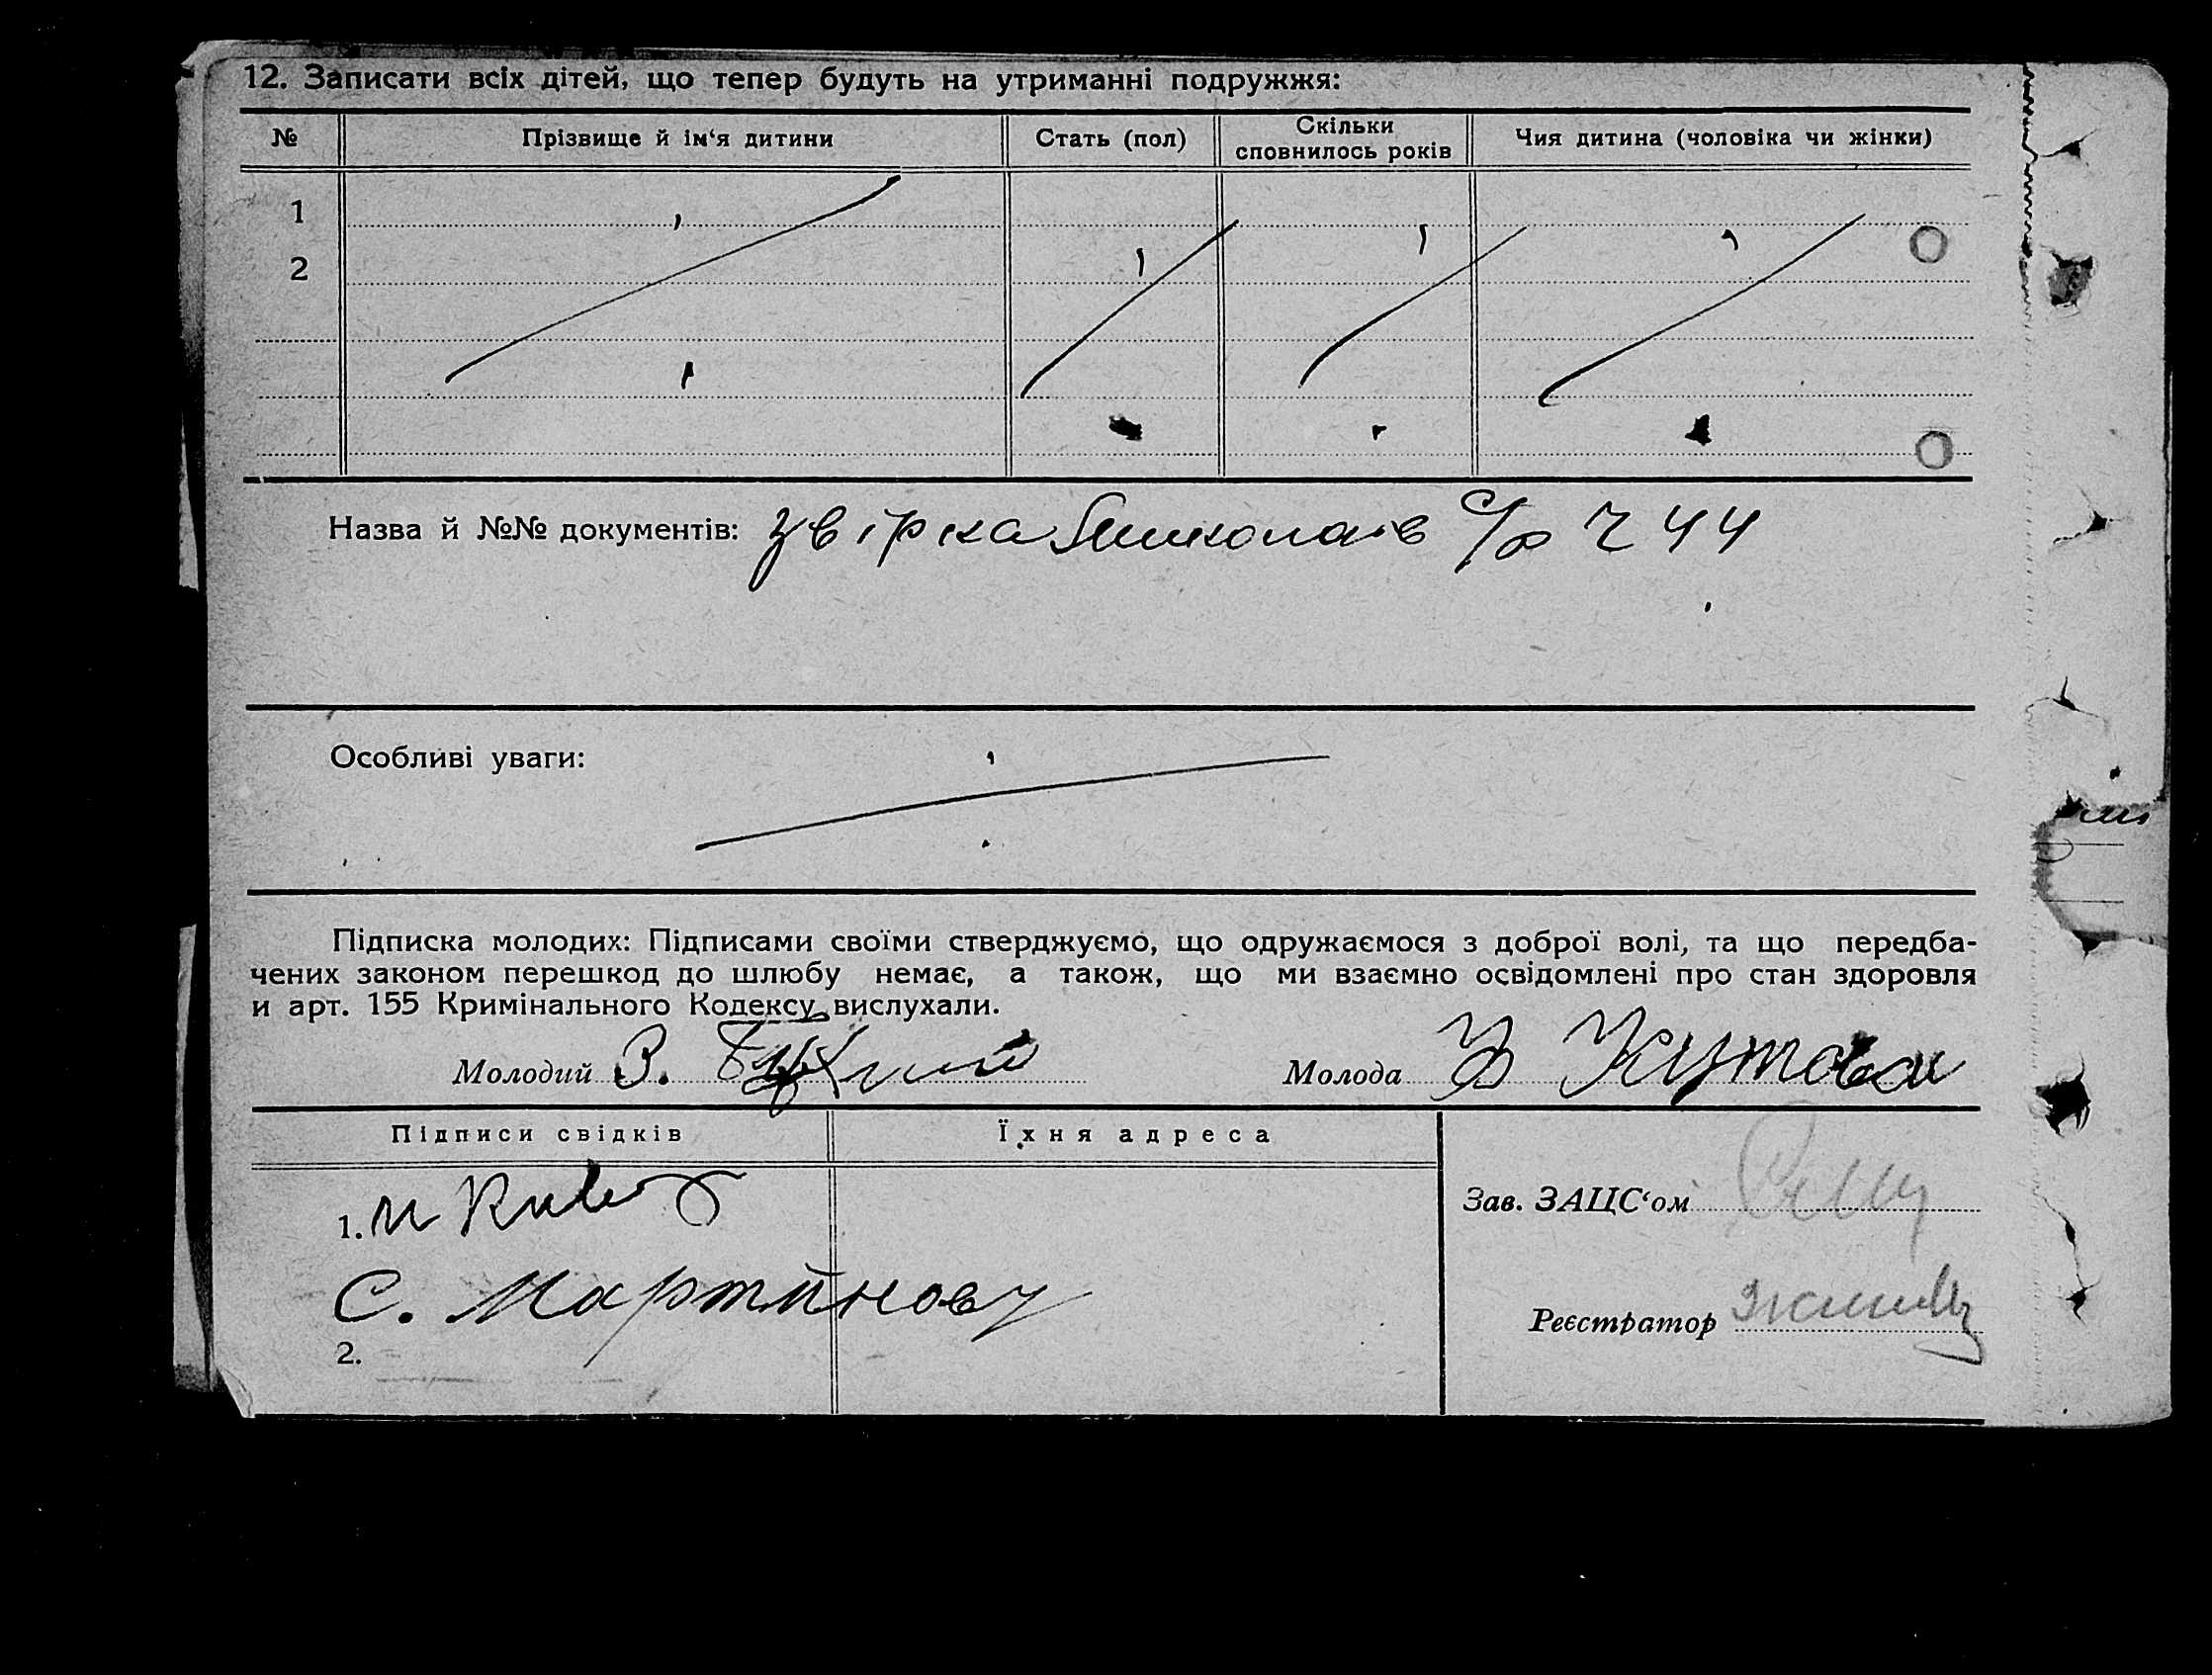 12. Записати всіх дітей, що тепер будуть на утриманні подружжя:
№ Прізвище й ім‘я дитини Стать (пол) Скільки сповнилось років Чия дитина (чоловіка чи жінки)
1
2
Назва й №№ документів: с/р 44
Особливі уваги:
Підписка молодих: Підписами своїми стверджуємо, що одружаємося з доброї волі, та що передба-
чених законом перешкод до шлюбу немає, а також, що ми взаємно освідомлені про стан здоровля
и арт. 155 Кримінального Кодексу вислухали.
Молодий З. Молода Кутова
Підписи свідків Їхня адреса
1.
Зав. ЗАЦС‘ом
С. Мартинову
Реєстратор
2.